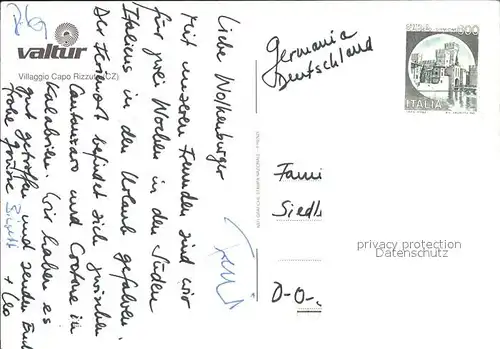 valtur
Villaggio Capo Rizzuto (CZ)
Liebe Wolkenburger
Mit unseren Freunden sind wir
für zwei Wochen in den Süden
Italiens in den Urlaub gefahren.
Der Ferienort befindet sich zwischen
Cantanzaro und Crotone in
Kalabrien. Wir haben es
gut getroffen und senden Euch
frohe Grüsse Birgitt + Leo
Germania
Deutschland
ITALIA
Fami
Siedl
D-O-
privacy protection
Datenschutz